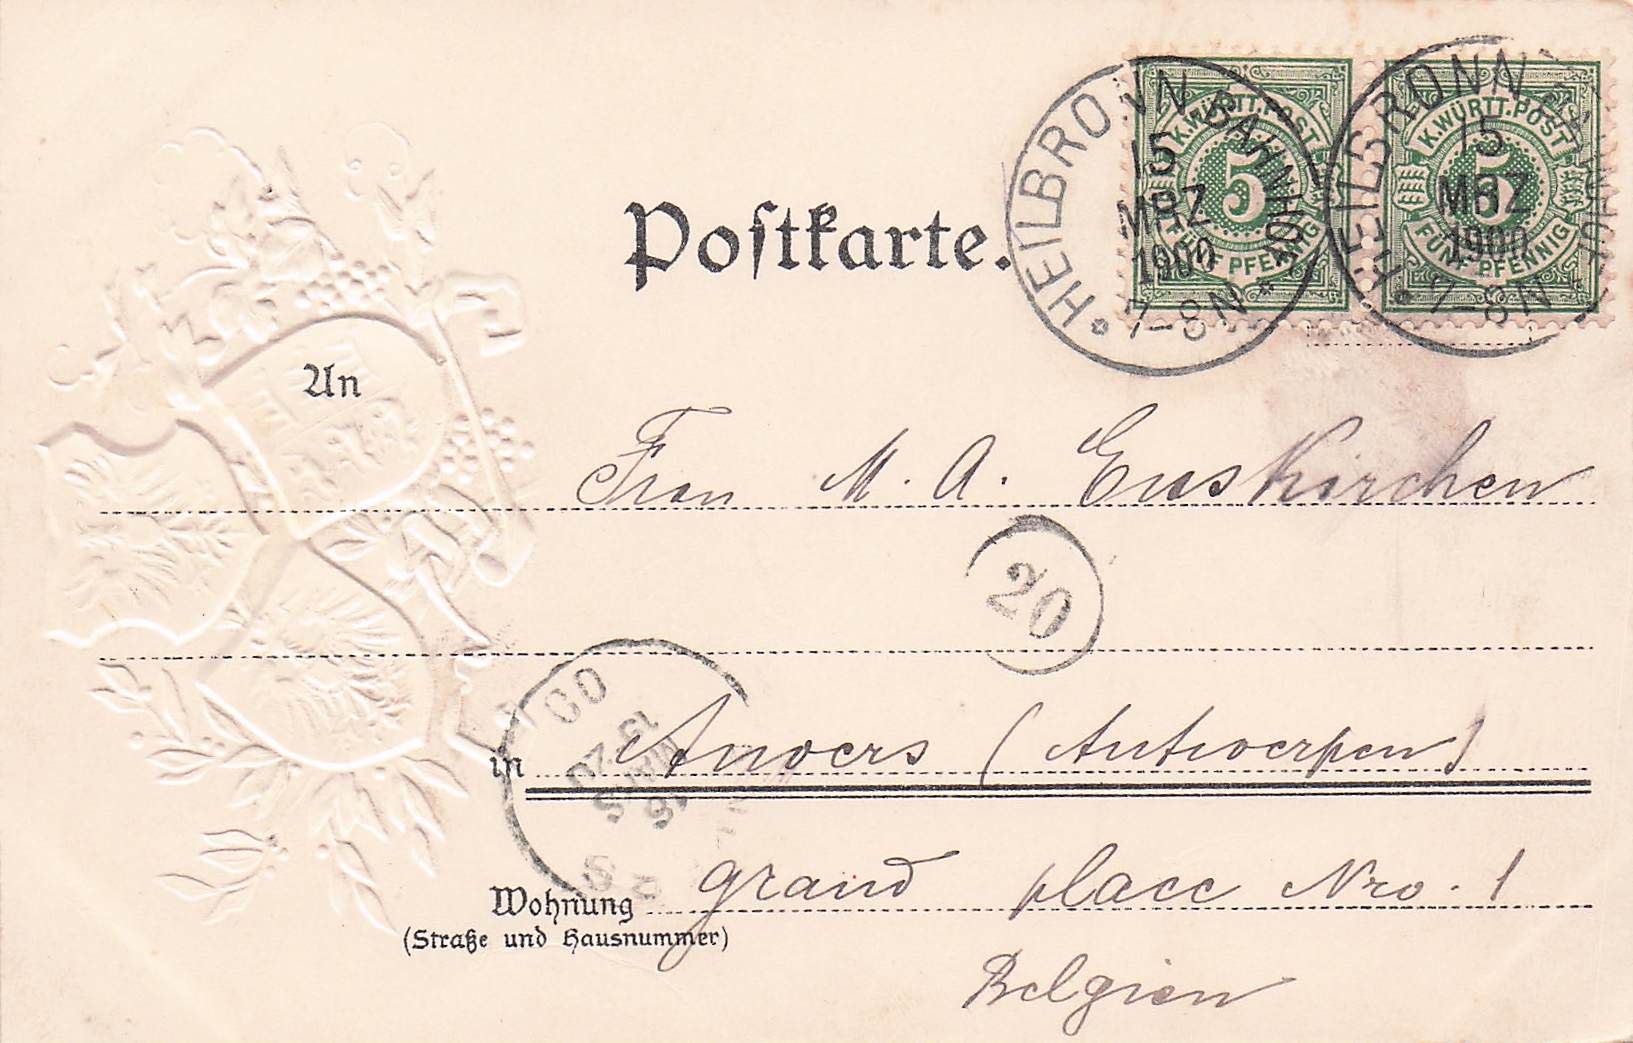 Postkarte.
K.WÜRTT.POST
5
FÜNF PFENNIG
K.WÜRTT.POST
5
FÜNF PFENNIG
HEILBRONN BAHNHOF
15
MRZ
1900
7-8N
HEILBRONN BAHNHOF
MRZ
1900
7-8N
An
Frau M. A. Euskirchen
20
in Anvers (Antwerpen)
MARS
Wohnung grand place Nro. 1
(Straße und Hausnummer)
Belgien